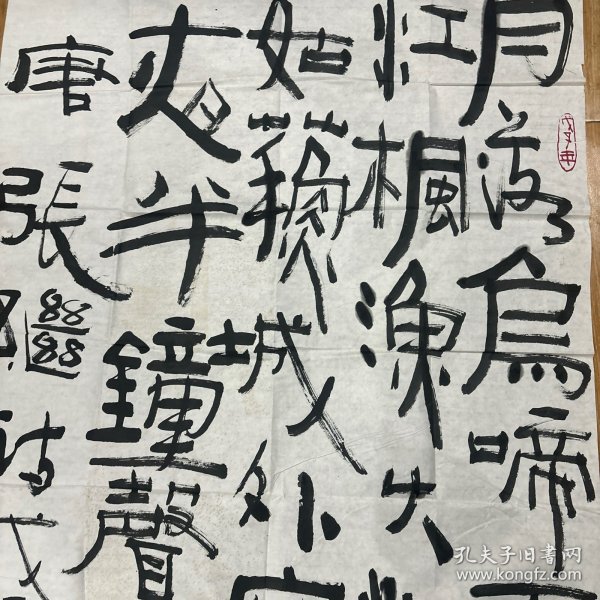 月落烏啼
江楓漁火
姑蘇城外
夜半鐘聲
唐張繼詩
孔夫子旧书网
www.kongfz.com